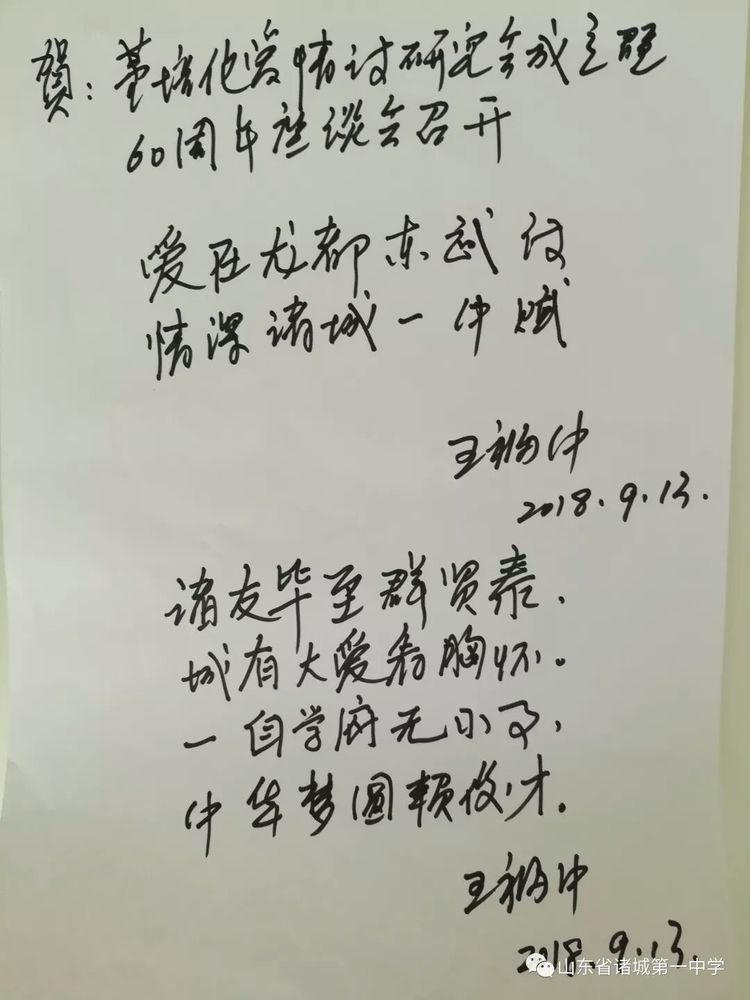 賀：董培他爱情诗研究会成立暨
60周年座谈会召开
爱在龙都东武诗
情深诸城一中赋
王福中
2018.9.13.
诸友毕至群贤泰、
城有大爱看胸怀。
一自学府无小了、
中华梦圆赖俊才。
王福中
2018.9.13.
山东省诸城第一中学